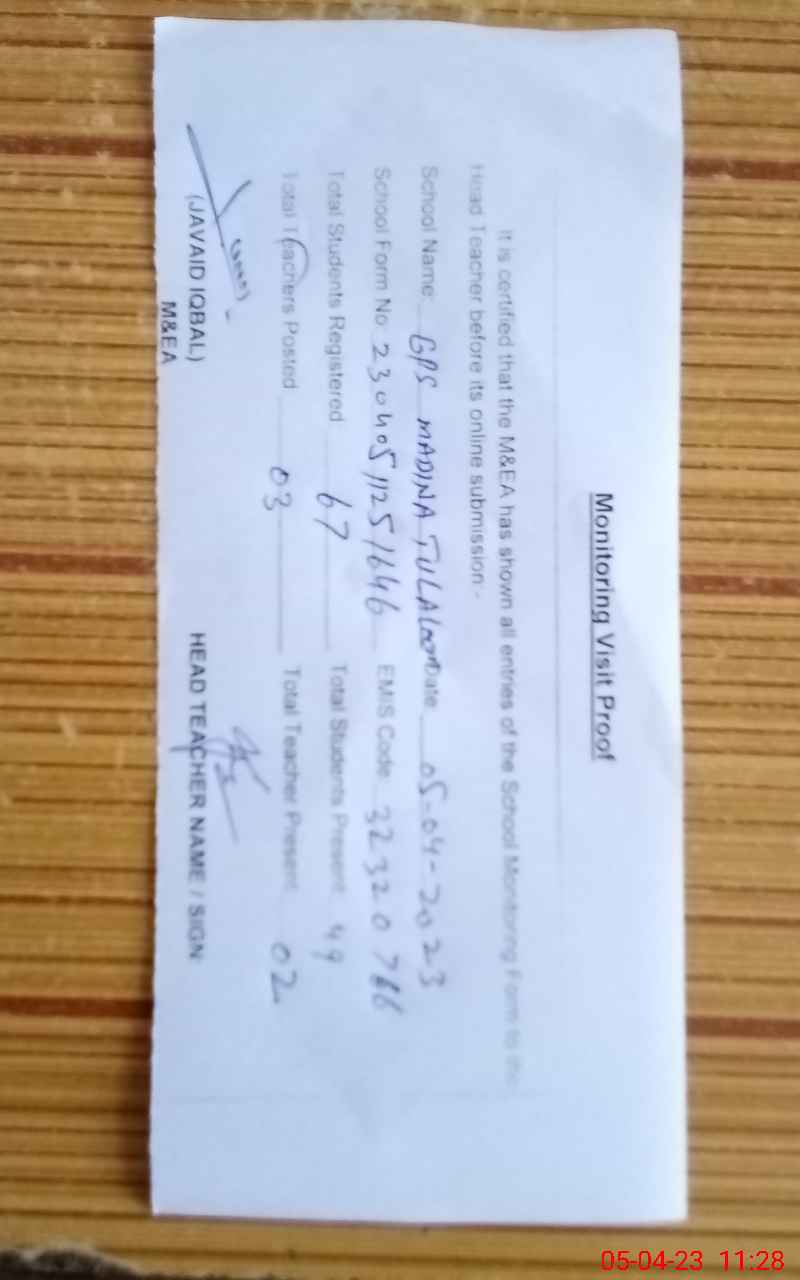 Monitoring Visit Proof
It is certified that the M&EA has shown all entries of the School Monitoring Form to the
Head Teacher before its online submission:-
School Name: GPS MADINA TULAloom Date 05-04-2023
School Form No 23040511251646 EMIS Code: 32320766
Total Students Registered 67 Total Students Present 49
Total Teachers Posted 03 Total Teacher Present 02
(JAVAID IQBAL) HEAD TEACHER NAME / SIGN
M&EA
05-04-23 11:28